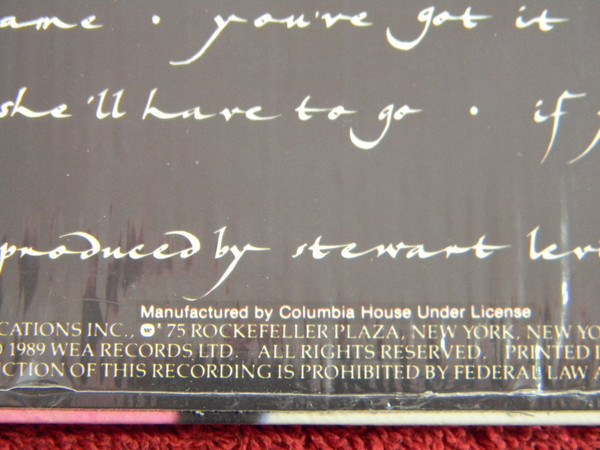 ame · you've got it
she'll have to go · if
produced by stewart levi
Manufactured by Columbia House Under License
CATIONS INC., 75 ROCKEFELLER PLAZA, NEW YORK, NEW YO
1989 WEA RECORDS LTD. ALL RIGHTS RESERVED. PRINTED I
CTION OF THIS RECORDING IS PROHIBITED BY FEDERAL LAW A